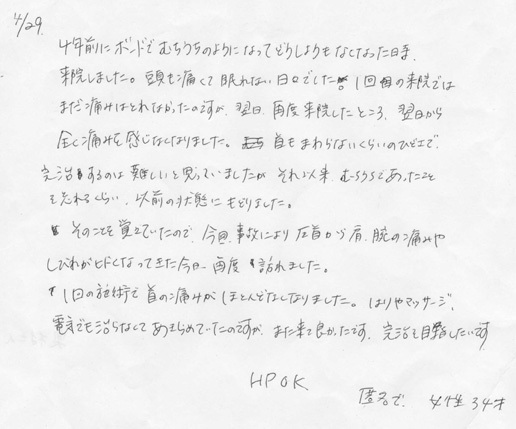 4/29.
4年前にボンドでむちうちのようになってどうしようもなくなった時
来院しました。頭も痛くて眠れない日々でした。1回目の来院では
まだ痛みはとれなかったのですが、翌日、再度来院したところ、翌日から
全く痛みを感じなくなりました。首もまわらないくらいのひどさで、
完治するのは難しいと思っていましたが それ以来、むちうちであったこと
も忘れるくらい、以前の状態にもどりました。
そのことを覚えていたので、今回、事故により 左首から肩、腕の痛みや
しびれがヒドくなってきた今日、再度 訪れました。
1回の施術で首の痛みがほとんどなくなりました。はりやマッサージ、
電気でも治らなくてあきらめていたのですが、また来て良かったです。完治を目指したいです
HP OK
匿名で、 女性 34才